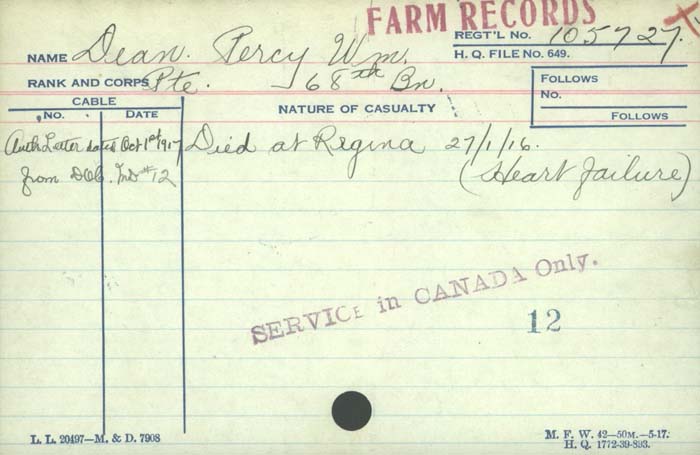 FARM RECORDS
REGT'L No. 105727.
NAME Dean. Percy Wm.
H. Q. FILE No. 649.
RANK AND CORPS Pte. 68th Bn.
FOLLOWS
No.
FOLLOWS
CABLE
No. DATE
NATURE OF CASUALTY
Auth Letter dated Oct 1st 1917 Died at Regina 27/1/16.
from DOC. MD #12 (Heart failure)
SERVICE in CANADA Only.
12
L. L. 20497—M. & D. 7908
M. F. W. 42—50M.—5-17.
H. Q. 1772-39-893.